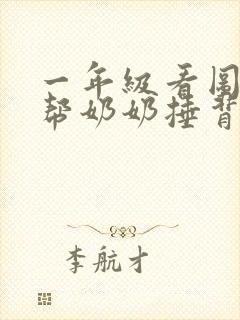 一年级看图
帮奶奶捶背
李航才